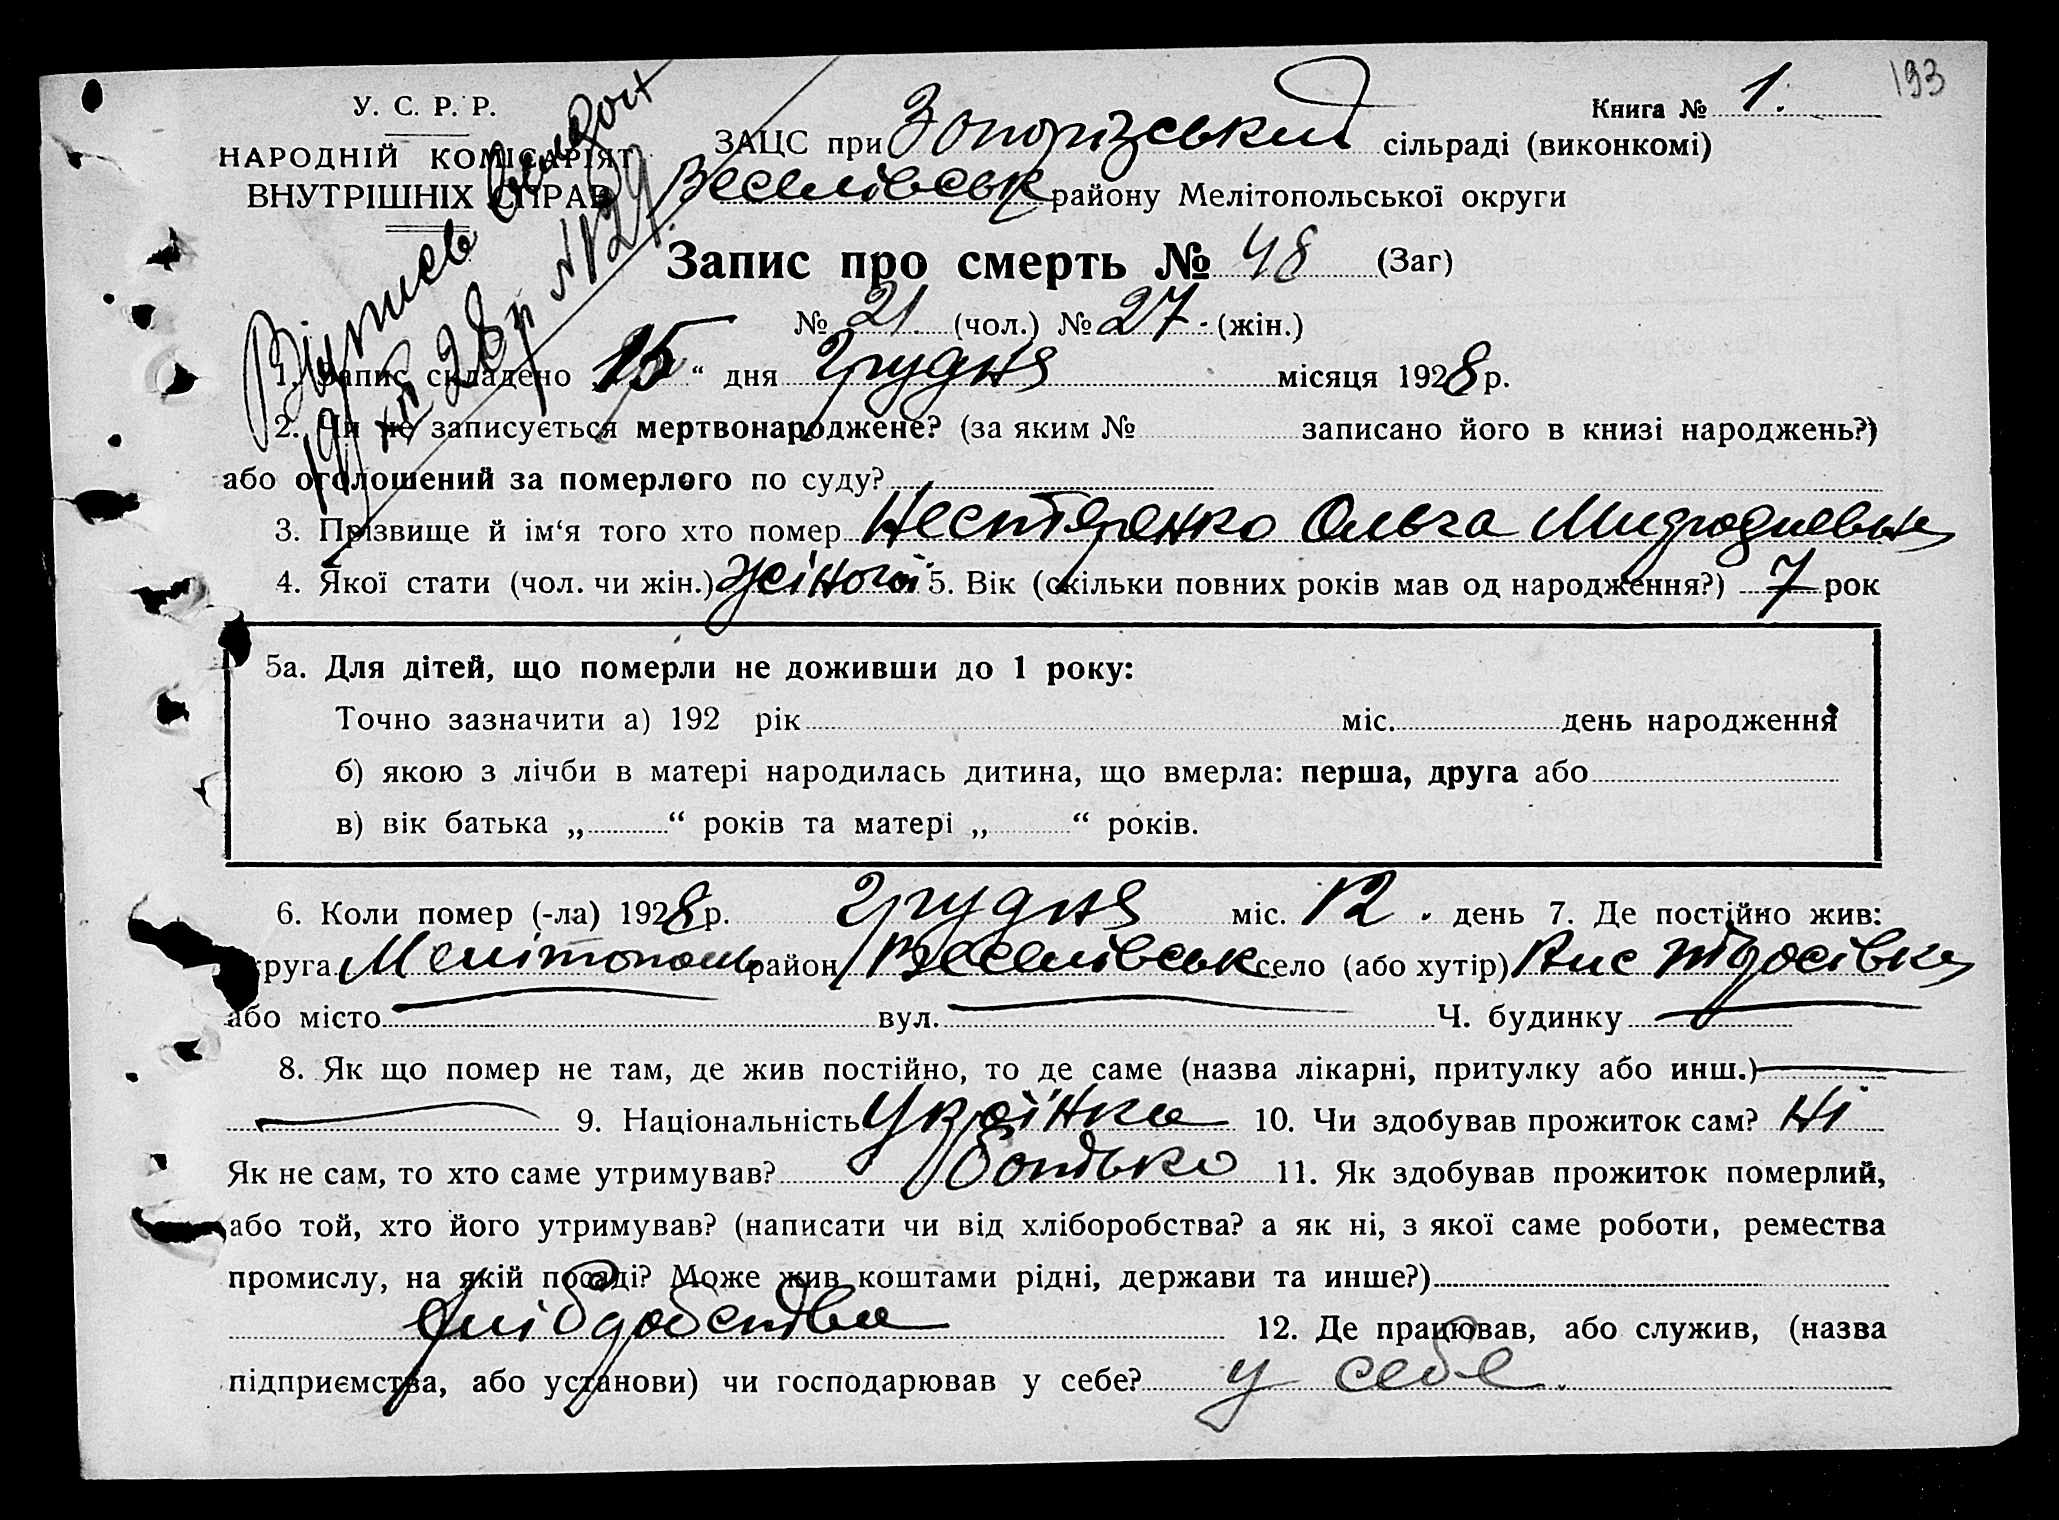 193
У. С. Р. Р.
Книга № 1.
НАРОДНІЙ КОМІСАРІЯТ
ВНУТРІШНІХ СПРАВ
ЗАЦС при Запорізській сільраді (виконкомі)
Веселівськ району Мелітопольської округи
Запис про смерть № 48 (Заг)
№ 21 (чол.) № 27 (жін.)
1. Запис складено „15“ дня Грудня місяця 1928 р.
2. Чи не записується мертвонароджене? (за яким № записано його в книзі народжень?)
або оголошений за померлого по суду?
3. Прізвище й ім‘я того хто помер Нестеренко Ольга
4. Якої стати (чол. чи жін.) жіночої 5. Вік (скільки повних років мав од народження?) 7 рок
5а. Для дітей, що померли не доживши до 1 року:
Точно зазначити а) 192 рік міс. день народження
б) якою з лічби в матері народилась дитина, що вмерла: перша, друга або
в) вік батька „ “ років та матері „ “ років.
6. Коли помер (-ла) 1928 р. Грудня міс. 12 день 7. Де постійно жив:
округа Мелітополь район Веселівськ село (або хутір)
або місто вул. Ч. будинку
8. Як що помер не там, де жив постійно, то де саме (назва лікарні, притулку або инш.)
9. Національність Українка 10. Чи здобував прожиток сам? Ні
Як не сам, то хто саме утримував? батько 11. Як здобував прожиток померлий,
або той, хто його утримував? (написати чи від хліборобства? а як ні, з якої саме роботи, ремества
промислу, на якій посаді? Може жив коштами рідні, держави та инше?)
хлібробства 12. Де працював, або служив, (назва
підприємства, або установи) чи господарював у себе? у себе